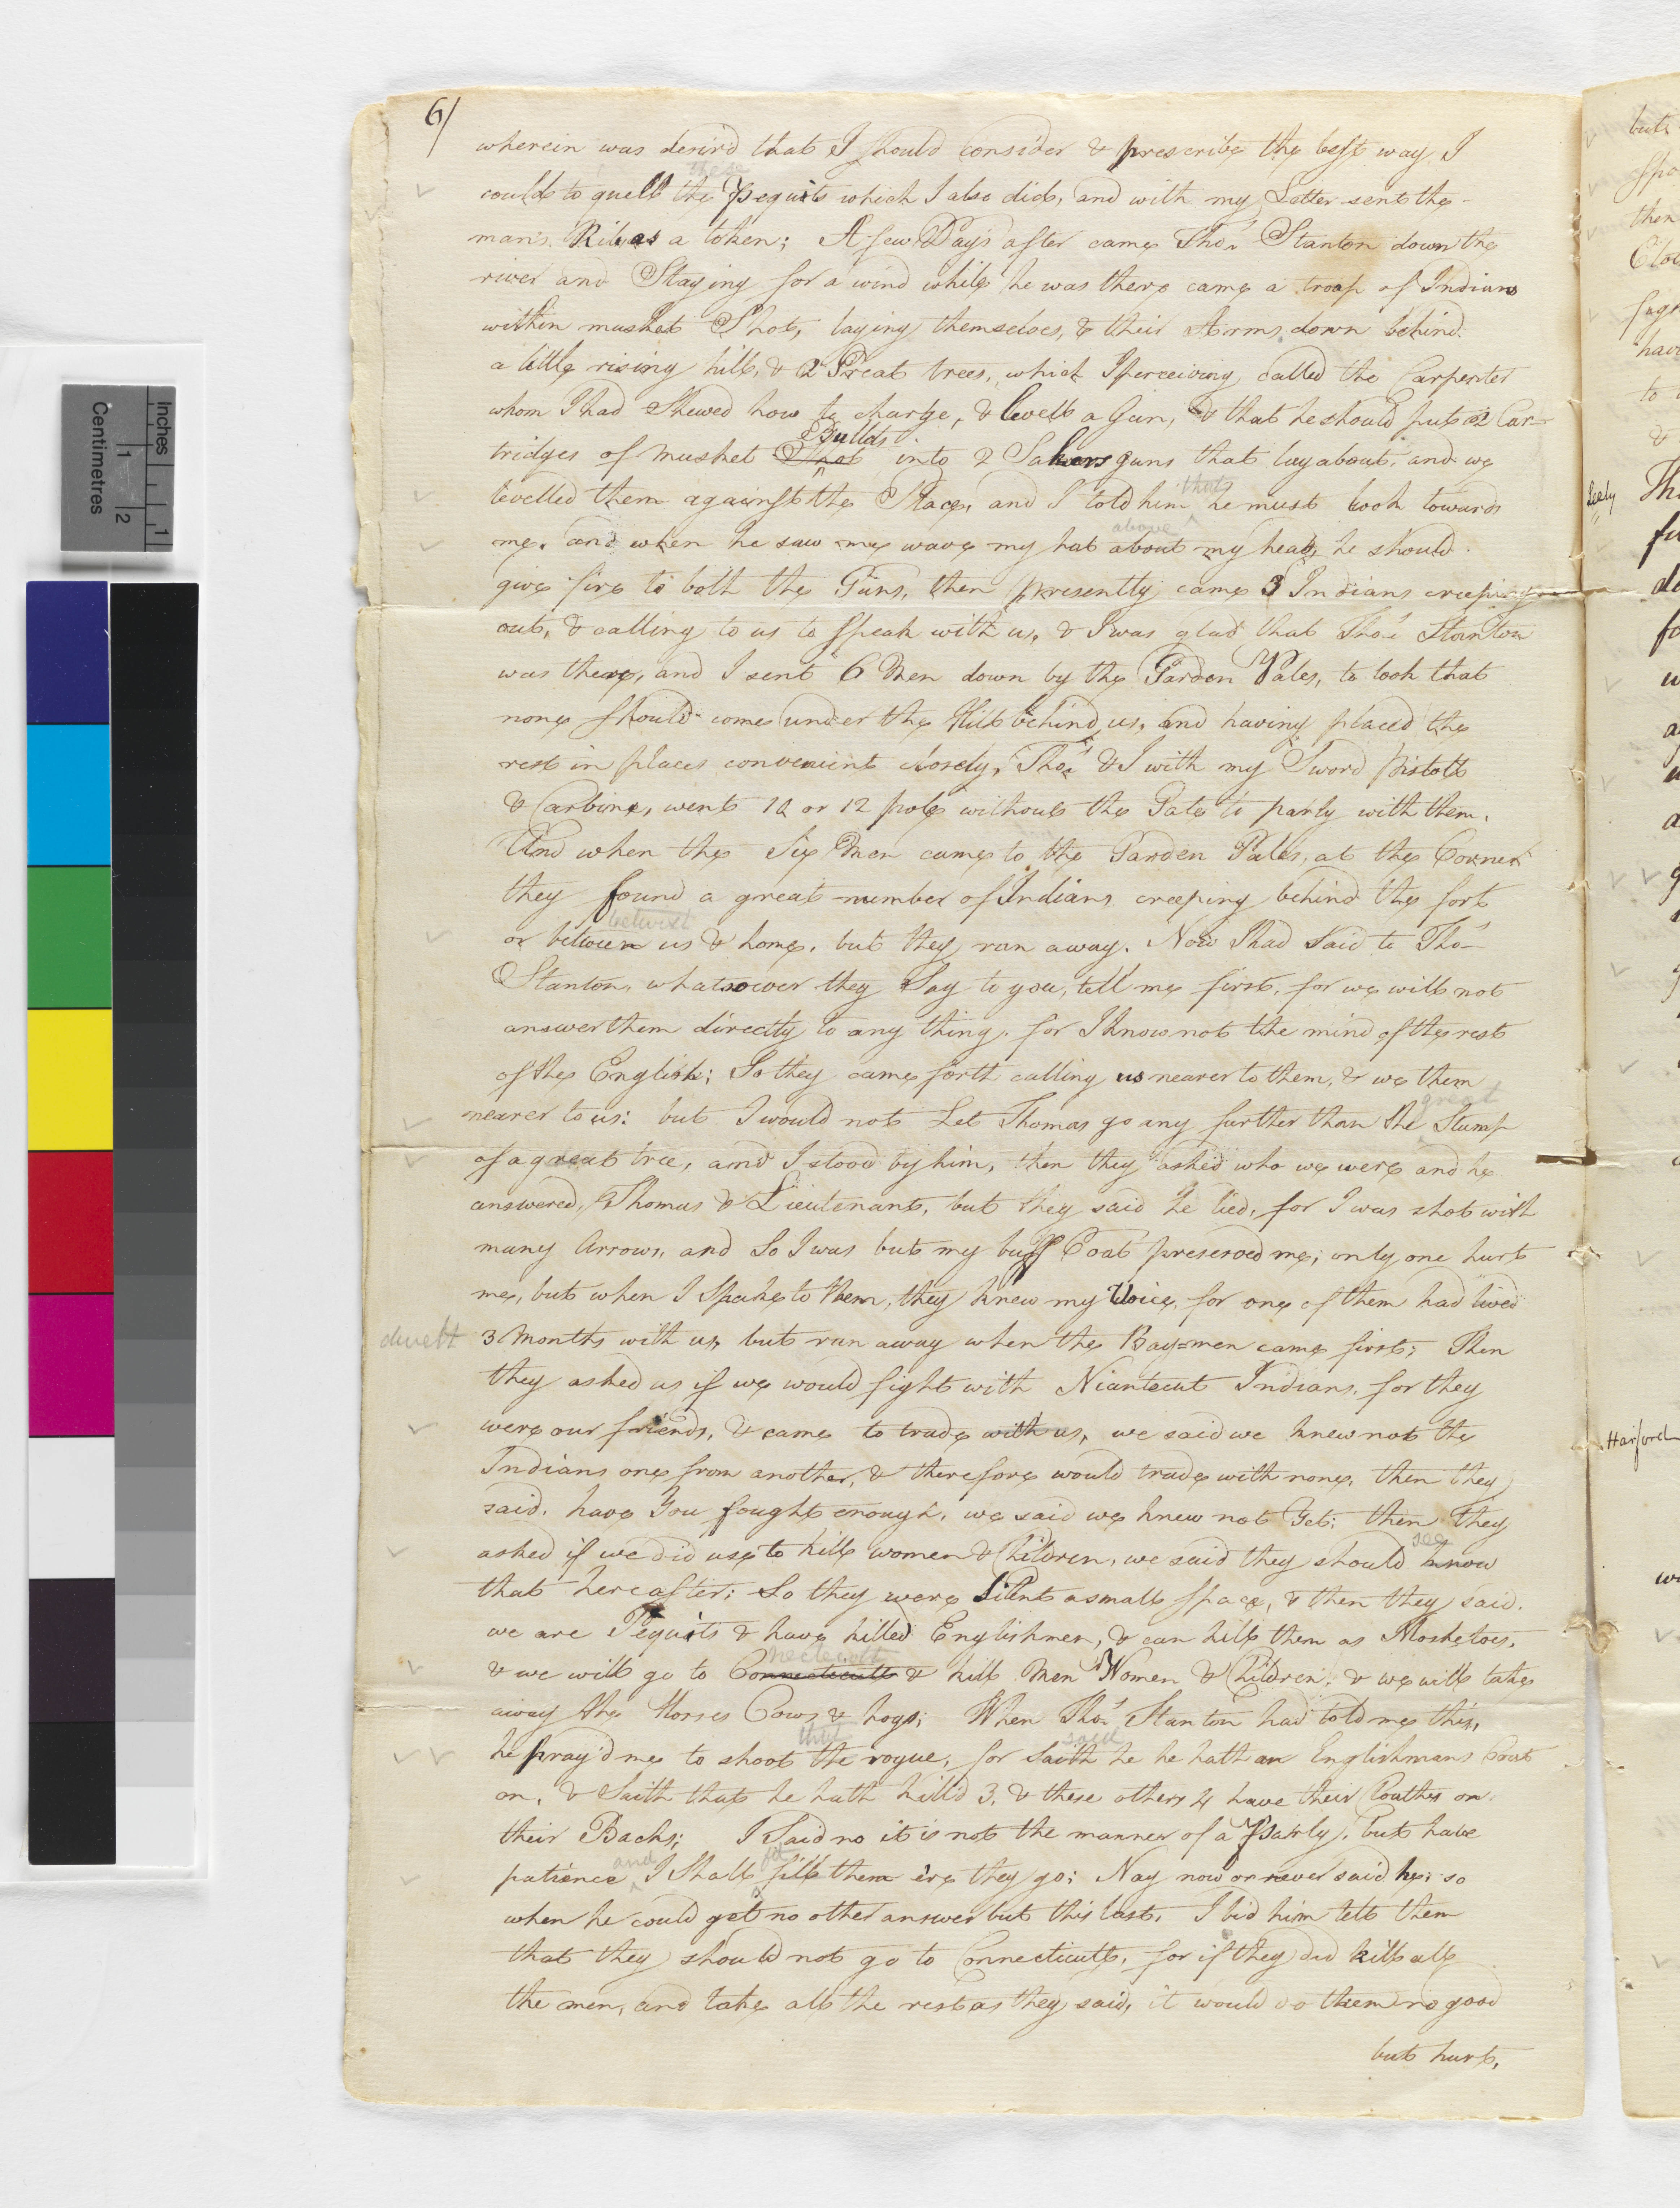 6/
wherein was desir'd that I should consider & prescribe the best way I
these
could to quell the Pequits which I also did, and with my Letter sent the
man's Rib as a token; A few Days after came Tho:s Stanton down the
river and Staying for a wind while he was there came a troop of Indians
within musket Shot, laying themselves, & their Arms down behind
a little rising hill, & 2 Great trees, which I perceiving called the Carpenter
whom I had Shewed how to charge, & levell a Gun, & that he should put 2 Car-
Bullds
tridges of musket Shot into 2 Sakers guns that lay about, and we
levelled them against the Place, and I told him that he must look towards
me. and when he saw me wave my hat about my head, he should
above
give fire to both the Guns, then presently came 3 Indians creeping
out, & calling to us to speak with us, & I was glad that Tho:s Stanton
was there, and I sent 6 Men down by the Garden Pales, to look that
none should come under the Hill behind us, and having placed the
rest in places convenient closely, Tho:s & I with my Sword pistoll
& Carbine, went 10 or 12 pole without the Gate to parly with them.
And when the Six Men came to the Garden Pales, at the Corner
they found a great number of Indians creeping behind the fort
betwixt
or between us & home, but they ran away. Now I had Said to Tho:
Stanton, whatsoever they Say to you, tell me first, for we will not
answer them directly to any thing, for I know not the mind of the rest
of the English; So they came forth calling us nearer to them, & we them
great
nearer to us: but I would not Let Thomas go any further than the Stump
of a great tree, and I stood by him, then they asked who we were and he
answered, Thomas & Lieutenant, but they said he lied, for I was shot with
many Arrows, and So I was but my buff Coat preserved me, only one hurt
me, but when I Spake to them, they knew my Voice, for one of them had lived
dwelt
3 Months with us, but ran away when the Bay=men came first; Then
they asked us if we would fight with Niantecut Indians, for they
were our friends, & came to trade with us, we said we knew not the
Indians one from another, & therefore would trade with none, then they
said, have You fought enough, we said we knew not Yet; then They
see
asked if we did use to kill women & Children, we said they should know
that hereafter; So they were Silent a small space, & then they said.
we are Pequits & have killed Englishmen, & can kill them as Moshetoes,
necticott
& we will go to Connecticutt & kill Men Women & Children, & we will take
away the Horses Cows & hogs; When Tho:s Stanton had told me this,
that said
he pray'd me to shoot the rogue, for Saith he he hath an Englishmans Coat
on, & Saith that he hath kill'd 3, & these others 4 have their Cloathes on
their Backs; I Said no it is not the manner of a Parly, but have
and fit
patience I Shall fill them ere they go; Nay now or never said he; so
when he could get no other answer but this last, I bid him tell them
that they should not go to Connecticutt, for if they did kill all
the men, and take all the rest as they said, it would do them no good
but hurt,
but
then
have
to
&
Harford